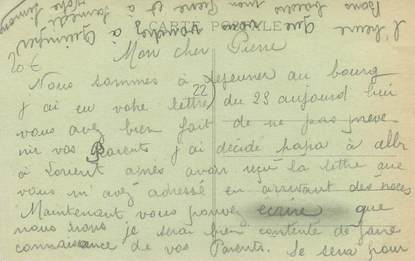 CARTE POSTALE
Mon cher Pierre
Nous sommes à déjeuner au bourg
J ai eu votre lettre du 23 aujourd hui
22
vous avez bien fait de ne pas preve
nir vos Parents j ai décidé papa à aller
à Lorient après avoir reçu la lettre que
vous m'avez adressé en arrivant des noces
Maintenant vous pouvez écrire que
nous irons je serai bien contente de faire
connaissance de vos Parents. Je serai pour
l'heure que vous voudrez à Quimper
Bons baisers mon Pierre et à Samedi